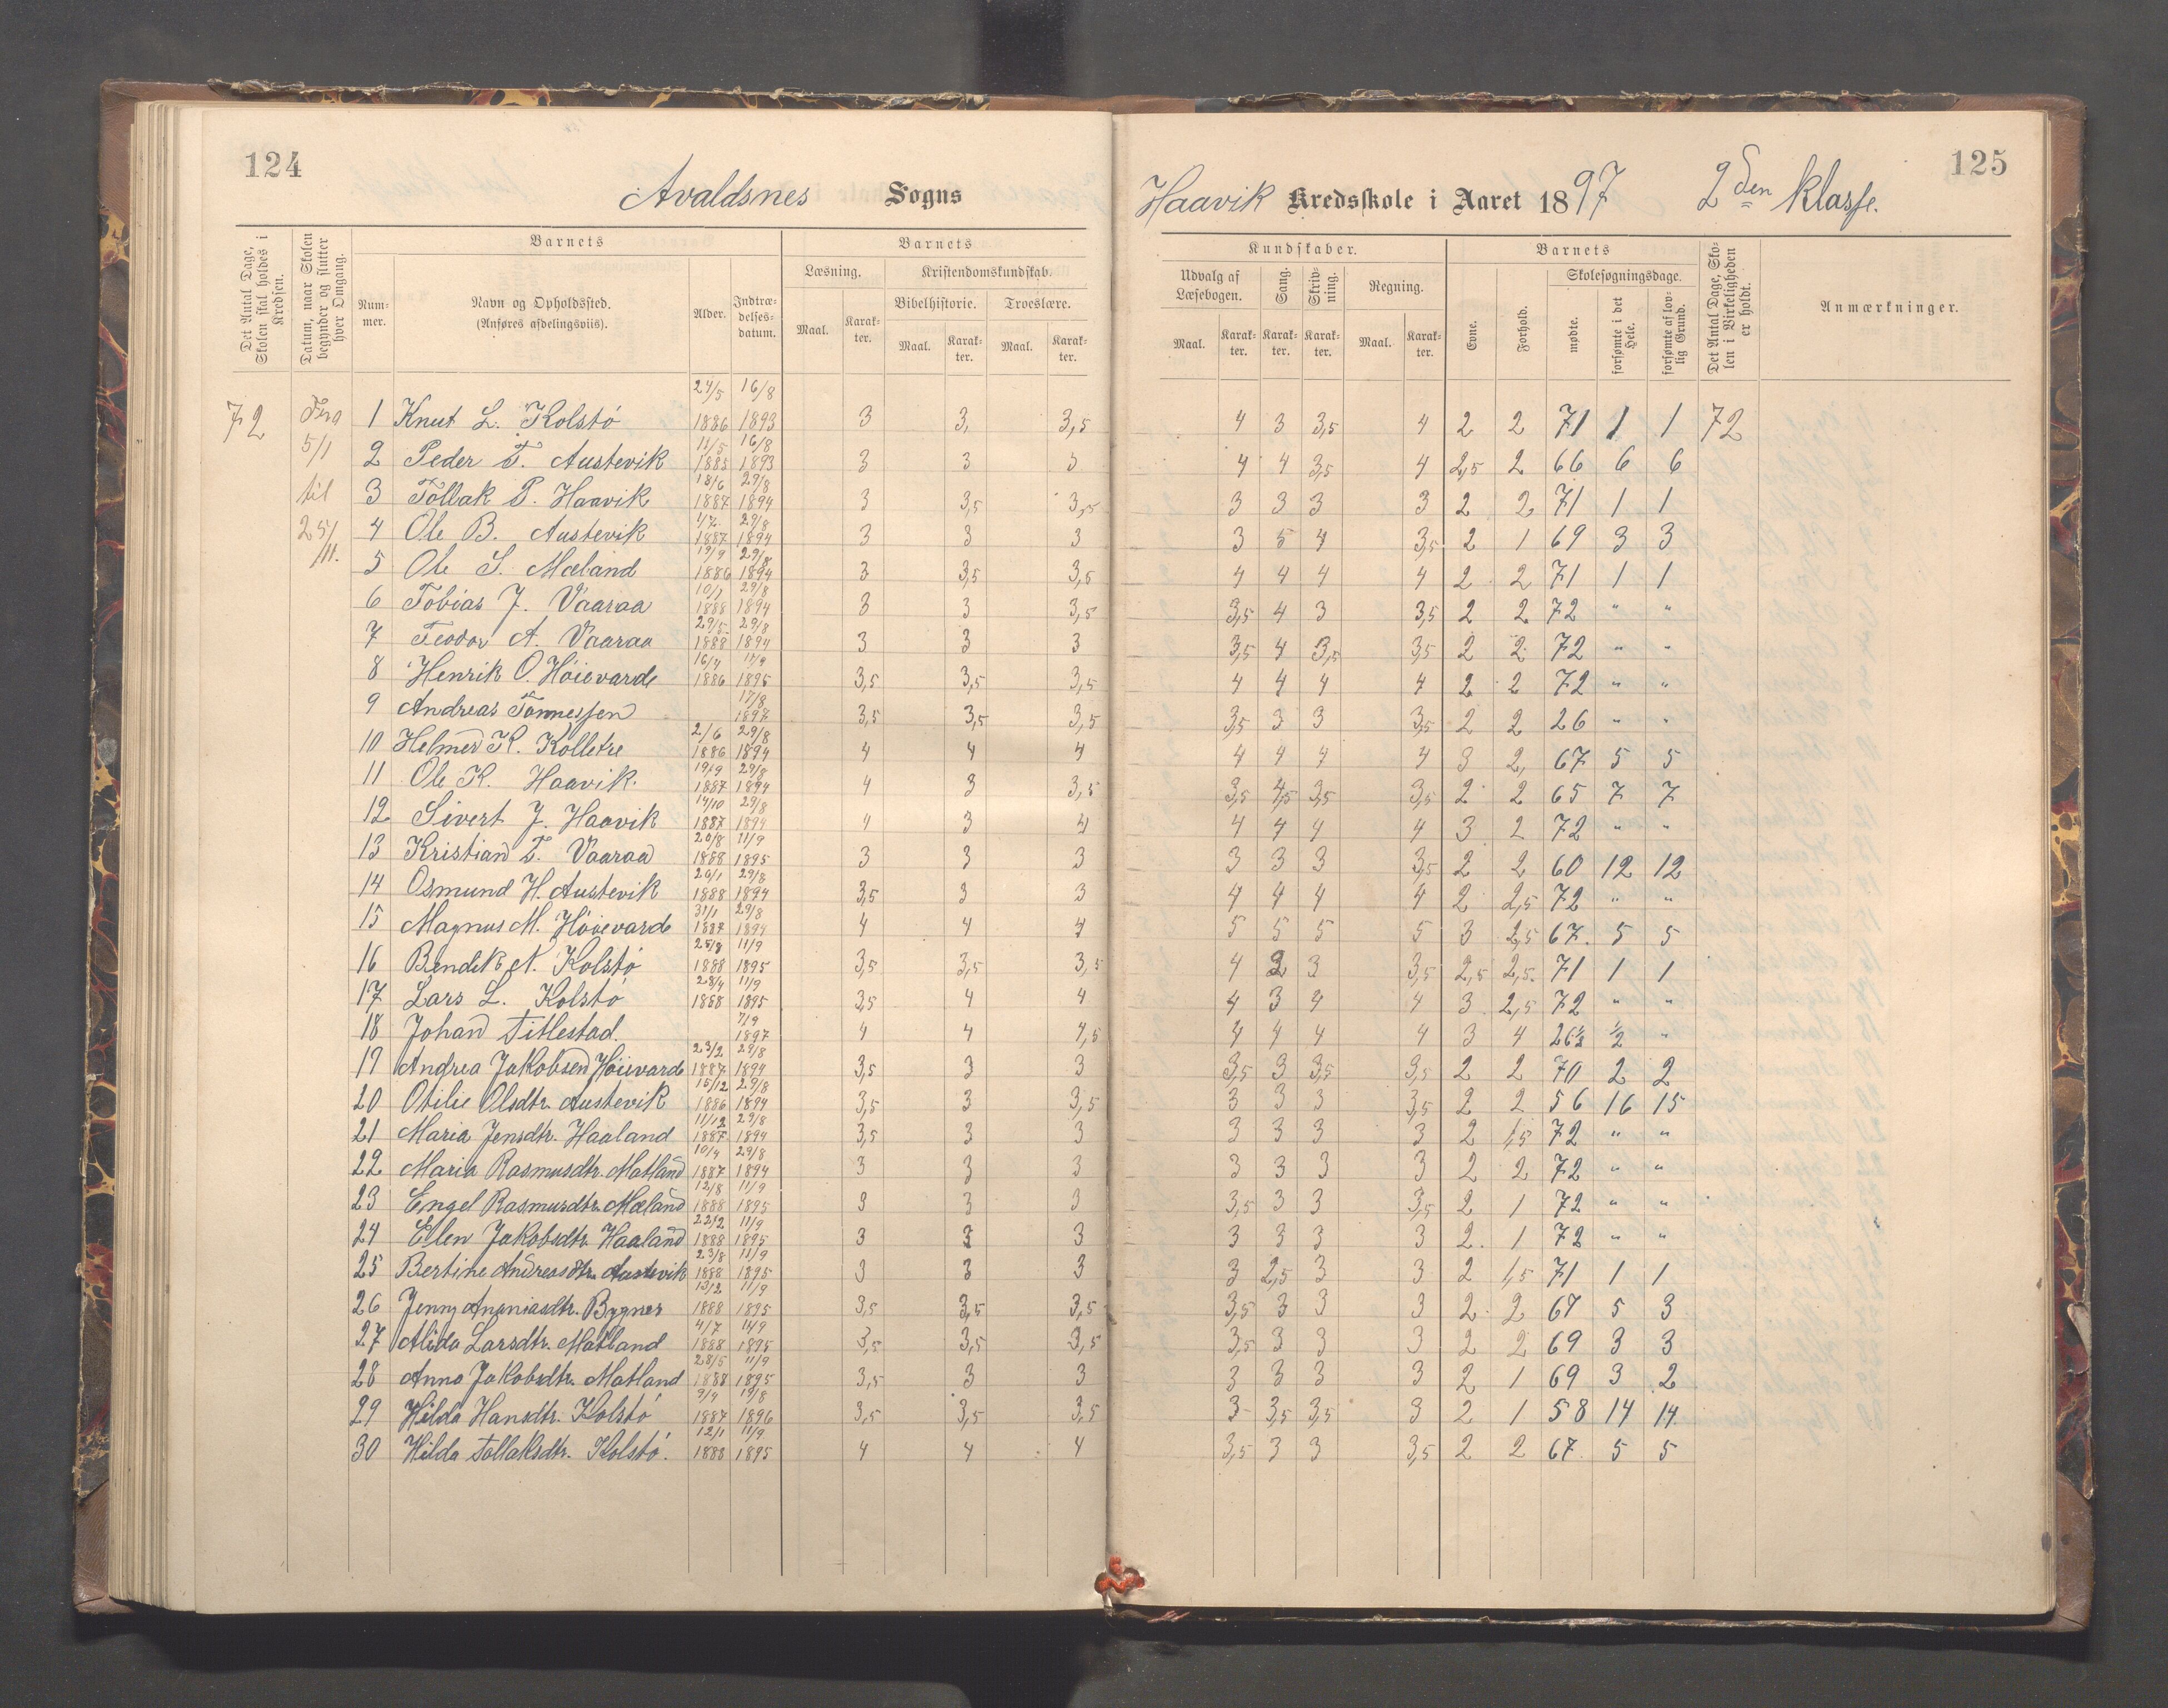 124
Avaldsnes Sogns
Det Antal Dage, Skolen skal holdes i Kredsen.
Datum, naar Skolen begynder og slutter hver Omgang.
Barnets
Num-mer.
Navn og Opholdssted.
(Anføres afdelingsviis).
Alder.
Indtræ-delses-datum.
Barnets
Læsning.
Maal.
Karak-ter.
Kristendomskundskab.
Bibelhistorie.
Maal.
Karak-ter.
Troeslære.
Maal.
Karak-ter.
125
Haavik Kredsskole i Aaret 1897 2den Klasse.
Kundskaber.
Udvalg af Læsebogen.
Maal.
Karak-ter.
Sang.
Karak-ter.
Skriv-ning.
Karak-ter.
Regning.
Maal.
Karak-ter.
Barnets
Evne.
Forhold.
Skolesøgningsdage.
mødte.
forsømte i det Hele.
forsømte af lov-lig Grund.
Det Antal Dage, Sko-len i Virkeligheden er holdt.
Anmærkninger.
72 Fra 5/1 til 25/11.
1 Knut L. Kolstö 24/5 1886 16/8 1893 3 3, 3,5 4 3 3,5 4 2 2 71 1 1 72
2 Peder T. Austevik 11/5 1885 16/8 1893 3 3 3 4 4 3,5 4 2,5 2 66 6 6
3 Tollak P. Haavik 18/6 1887 29/8 1894 3 3,5 3,5 3 3 3 3 2 2 71 1 1
4 Ole B. Austevik 4/7 1887 29/8 1894 3 3 3 3 5 4 3,5 2 1 69 3 3
5 Ole S. Mæland 19/9 1886 29/8 1894 3 3,5 3,5 4 4 4 4 2 2 71 1 1
6 Tobias J. Vaaraa 10/1 1888 29/8 1894 3 3 3,5 3,5 4 3 3,5 2 2 72 " "
7 Teodor A. Vaaraa 29/5 1888 29/8 1894 3 3 3 3,5 4 3,5 3,5 2 2 72 " "
8 Henrik O. Höievarde 16/4 1886 11/9 1895 3,5 3,5 3,5 4 4 4 4 2 2 72 " "
9 Andreas Tönnessen 17/8 1897 3,5 3,5 3,5 3,5 3 3 3,5 2 2 26 " "
10 Helmer K. Kolletre 2/6 1886 29/8 1894 4 4 4 4 4 4 4 3 2, 67 5 5
11 Ole K. Haavik. 19/9 1887 29/8 1894 4 3 3,5 3,5 4,5 3,5 3,5 2 2 65 7 7
12 Sivert J. Haavik 14/10 1887 29/8 1894 4 3 4 4 4 4 4 3 2 72 " "
13 Kristian T. Vaaraa 20/8 1888 11/9 1895 3 3 3 3 3 3 3,5 2 2 60 12 12
14 Osmund H. Austevik 20/1 1888 29/8 1894 3,5 3 3 4 4 4 4 2 2,5 72 " "
15 Magnus M. Höievarde 31/1 1887 29/8 1894 4 4 4 5 5 5 5 3 2,5 67. 5 5
16 Bendik N. Kolstö 25/8 1888 11/9 1895 3,5 3,5 3,5 4 3 3 3,5 2,5 2,5. 71 1 1
17 Lars L. Kolstö 28/4 1888 11/9 1895 3,5 4 4 4 3 4 4 3 2,5 72 " "
18 Johan Titlestad. 7/9 1897 4 4 4,5 4 4 4 4 3 4 26½ ½ "
19 Andrea Jakobsen Höievarde 23/2 1887 29/8 1894 3,5 3 3 3,5 3 3,5 3,5 2 2 70 2 2
20 Otilie Olsdtr. Austevik 15/12 1886 29/8 1894 3,5 3 3,5 3 3 3 3,5 2 2 56 16 15
21 Maria Jensdtr. Haaland 11/12 1887 29/8 1894 3,5 3 3 3 3 3 3 2 1,5 72 " "
22 Maria Rasmusdtr. Matland 10/4 1887 29/8 1894 3 3 3 3 3 3 3 2 2 72 " "
23 Engel Rasmusdtr. Mæland 12/8 1888 11/9 1895 3 3 3 3,5 3 3 3,5 2 1 72 " "
24 Elen Jakobsdtr. Haaland 22/2 1888 11/9 1895 3 3 3 3 3 3 3 2. 1 72 " "
25 Bertine Andreasdtr. Austevik 23/8 1888 11/9 1895 3 3 3 3 2,5 3 3 2 1,5 71 1 1
26 Jenny Ananiasdtr. Bygnes 13/2 1888 11/9 1895 3,5 3,5 3,5 3,5 3 3 3 2 2 67 5 3
27 Alida Larsdtr. Matland 4/7 1888 11/9 1895 3,5 3,5 3,5 3,5 3 3 3 2 2 69 3 3
28 Anna Jakobsdtr. Matland 28/5 1888 11/9 1895 3,5 3 3 3 3 3 3 2 1 69 3 2
29 Hilda Hansdtr. Kolstö 9/4 1887 19/8 1896 3,5 3,5 3,5 3 3,5 3,5 3 2 1 58 14 14
30 Hilda Tollaksdtr. Kolstö. 12/1 1888 11/9 1895 4 4 4 3,5 3 3 3,5 2 2 67. 5 5